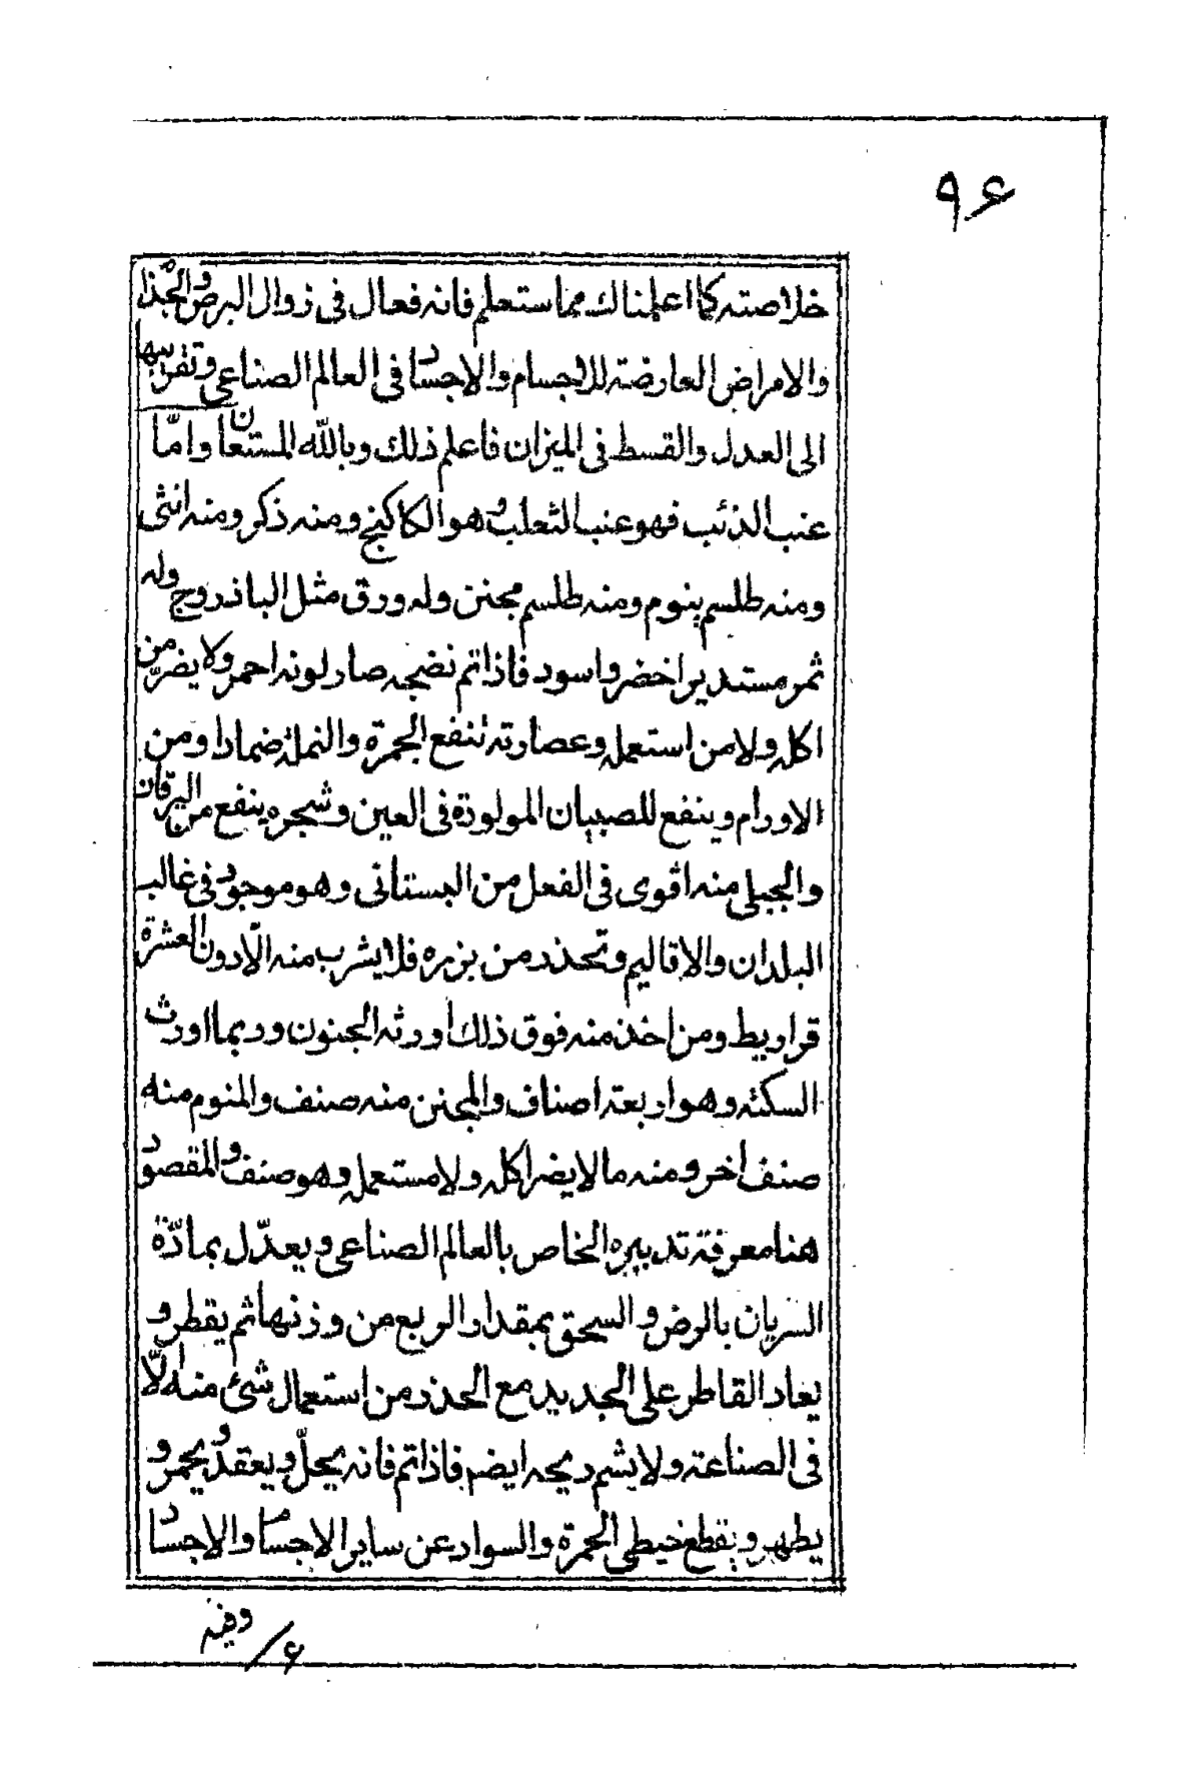 ۹۶
خلاصته كما اعلمناك مما ستعلم فانه فعال فى زوال البرص والجذام
والامراض العارضة للاجسام والاجساد فى العالم الصناعى وتقريبها
الى العدل والقسط فى الميزان فاعلم ذلك وبالله المستعان وامّا
عنب الذئب فهو عنب الثعلب وهو الكاكنج ومنه ذكر ومنه انثى
ومنه طلسم ينوم ومنه طلسم مجنن وله ورق مثل الباذروج وله
ثمر مستدير اخضر واسود فاذا تم نضجه صار لونه احمر ولا يضرّ من
اكله ولا من استعمله وعصارته تنفع الجمرة والنملة ضمادا ومن
الاورام وينفع للصبيان المولودة فى العين وشجره ينفع من اليرقان
والجبلى منه اقوى فى الفعل من البستانى وهو موجود فى غالب
البلدان والاقاليم وتحذر من بزره فلا يشرب منه الّا دون العشرة
قراريط ومن اخذ منه فوق ذلك اورثه الجنون وربما اورث
السكتة وهو اربعة اصناف والمجنن منه صنف والمنوم منه
صنف اخر ومنه ما لا يضر اكله ولا مستعمله وهو صنف والمقصود
هنا معرفة تدبيره الخاص بالعالم الصناعى ويعدّل بمادّة
السريان بالرض والسحق بمقدار الربع من وزنها ثم يقطر و
يعاد القاطر على الجديد مع الحذر من استعمال شئ منه الّا
فى الصناعة ولا يشم ريحه ايضا فاذا تم فانه يحلّ ويعقد ويحمر و
يطهر ويقطع خيطى الحمرة والسواد عن ساير الاجسام والاجساد
وفيه
۶